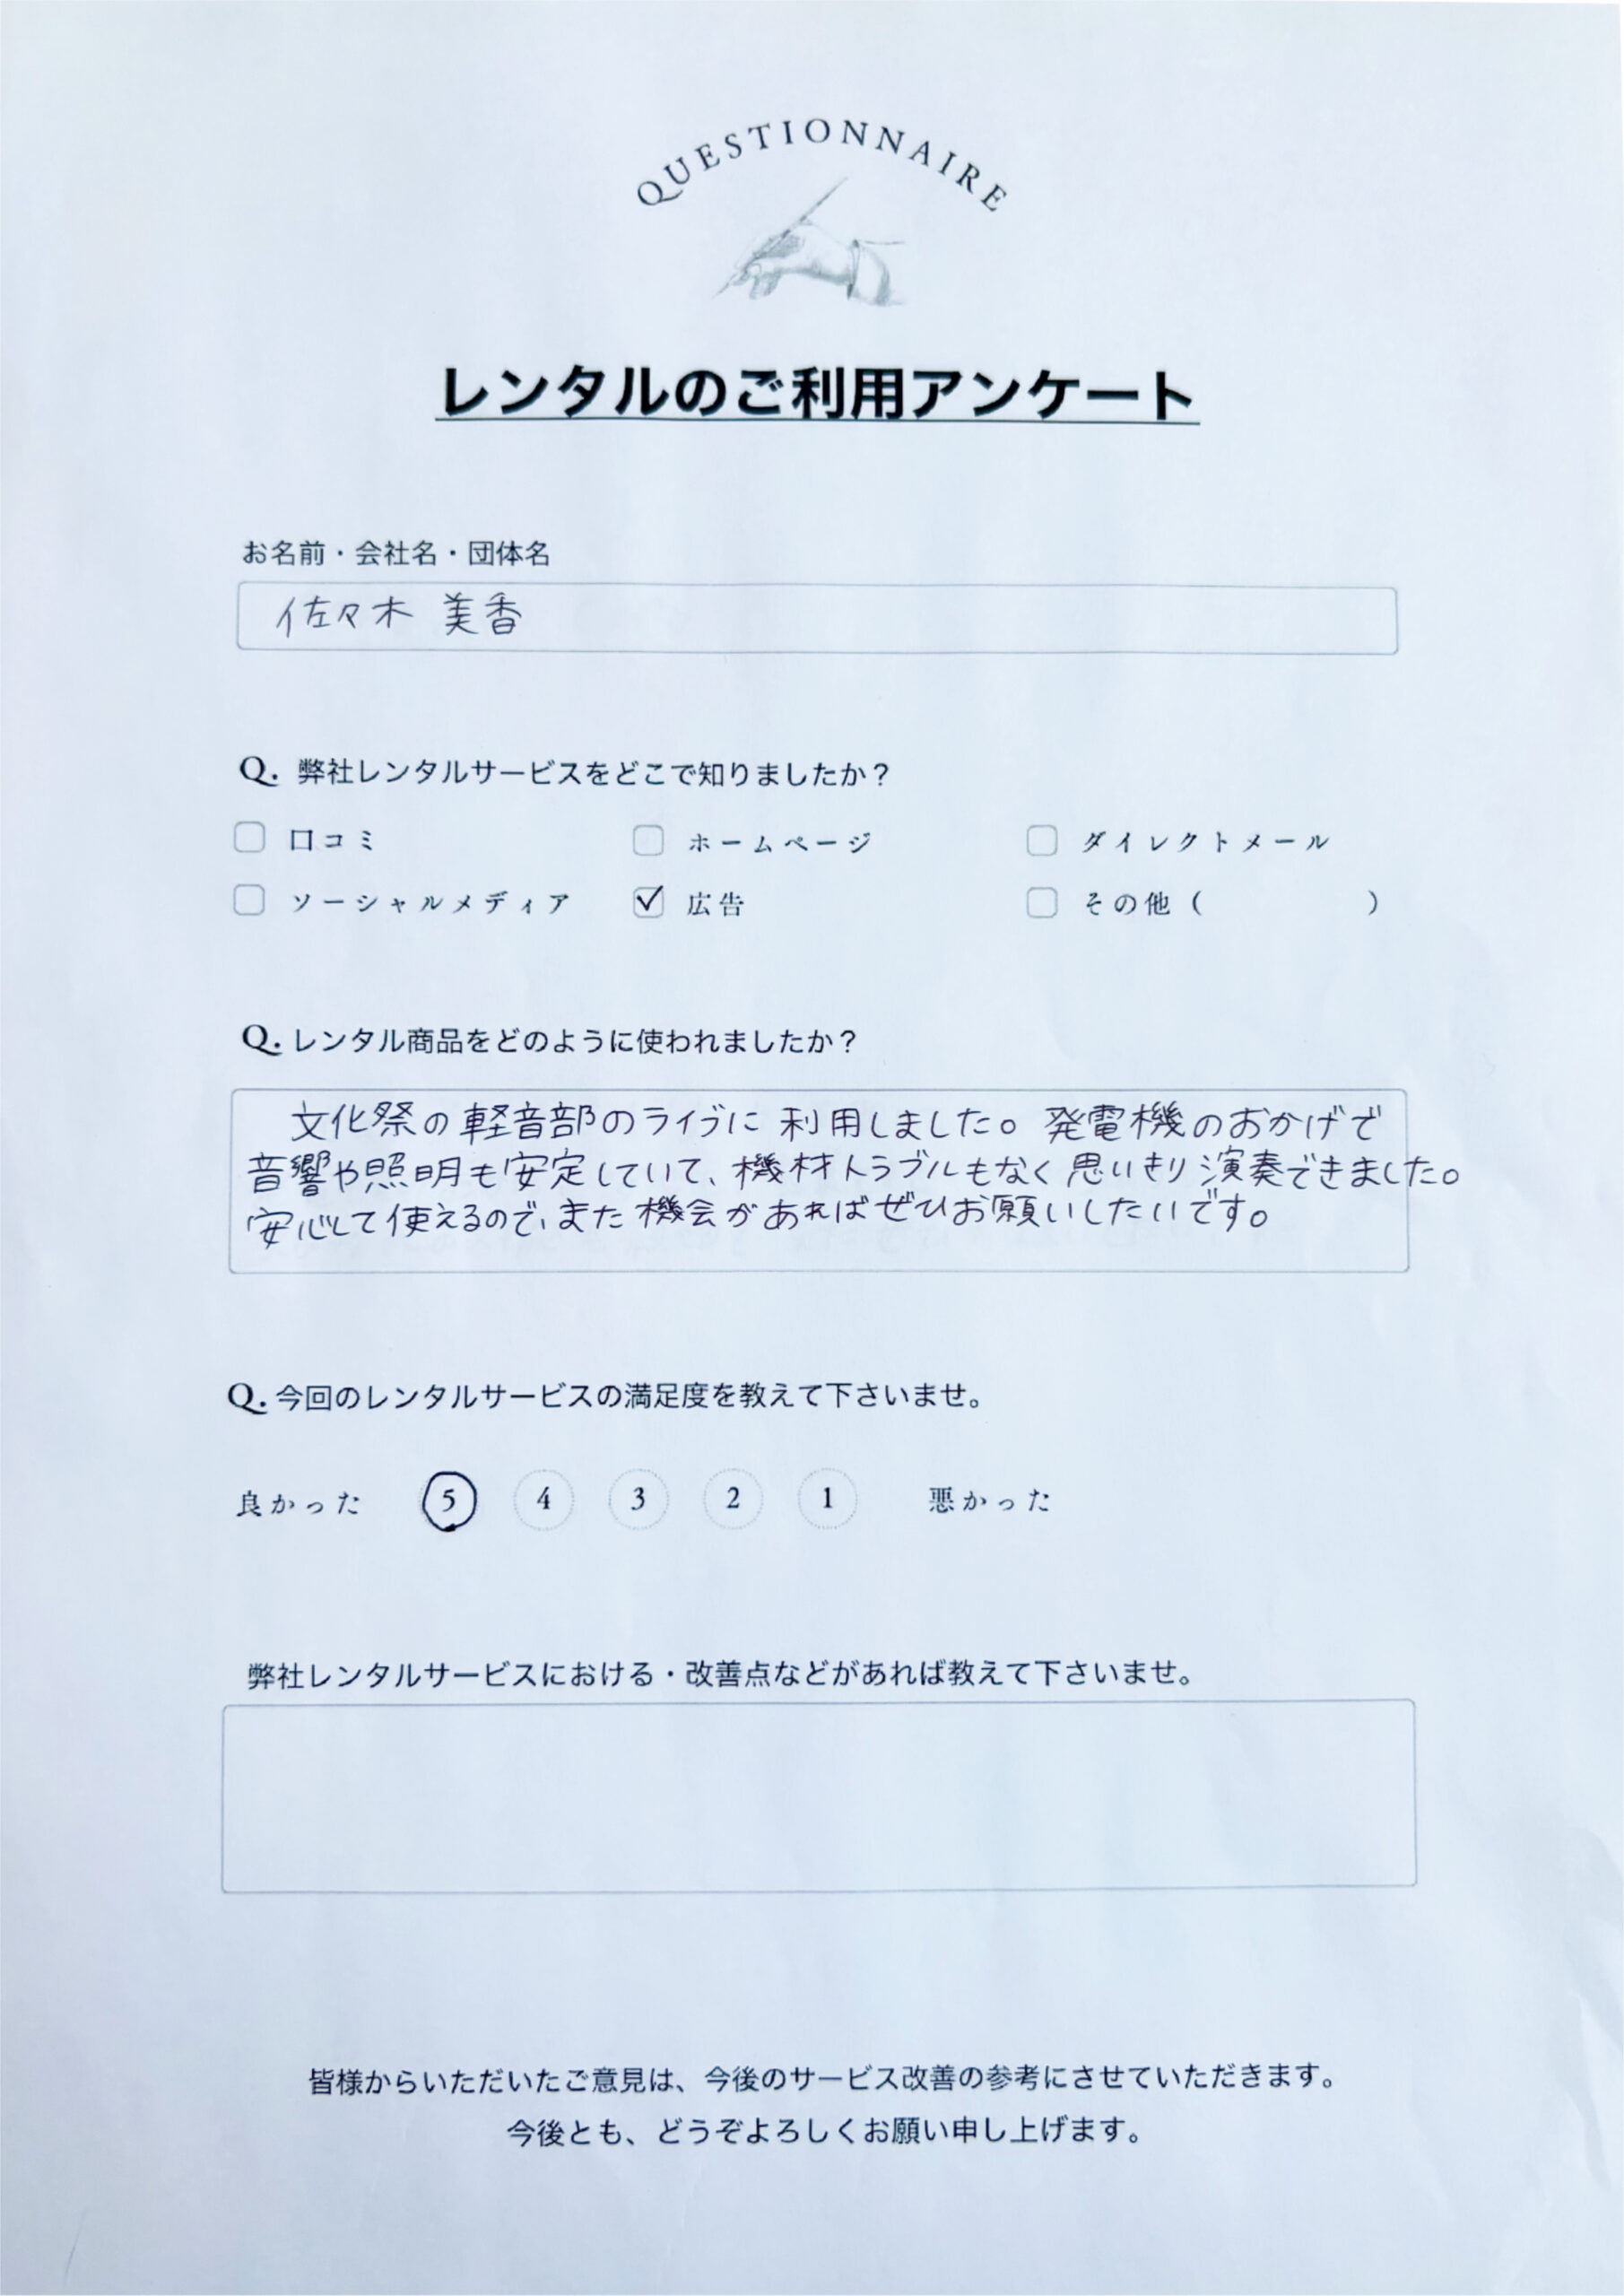 QUESTIONNAIRE
レンタルのご利用アンケート
お名前・会社名・団体名
佐々木 美香
Q. 弊社レンタルサービスをどこで知りましたか？
口コミ ホームページ ダイレクトメール
ソーシャルメディア ✓ 広告 その他（ ）
Q. レンタル商品をどのように使われましたか？
文化祭の軽音部のライブに利用しました。発電機のおかげで
音響や照明も安定していて、機材トラブルもなく思いきり演奏できました。
安心して使えるので、また機会があればぜひお願いしたいです。
Q. 今回のレンタルサービスの満足度を教えて下さいませ。
良かった 5 4 3 2 1 悪かった
弊社レンタルサービスにおける・改善点などがあれば教えて下さいませ。
皆様からいただいたご意見は、今後のサービス改善の参考にさせていただきます。
今後とも、どうぞよろしくお願い申し上げます。